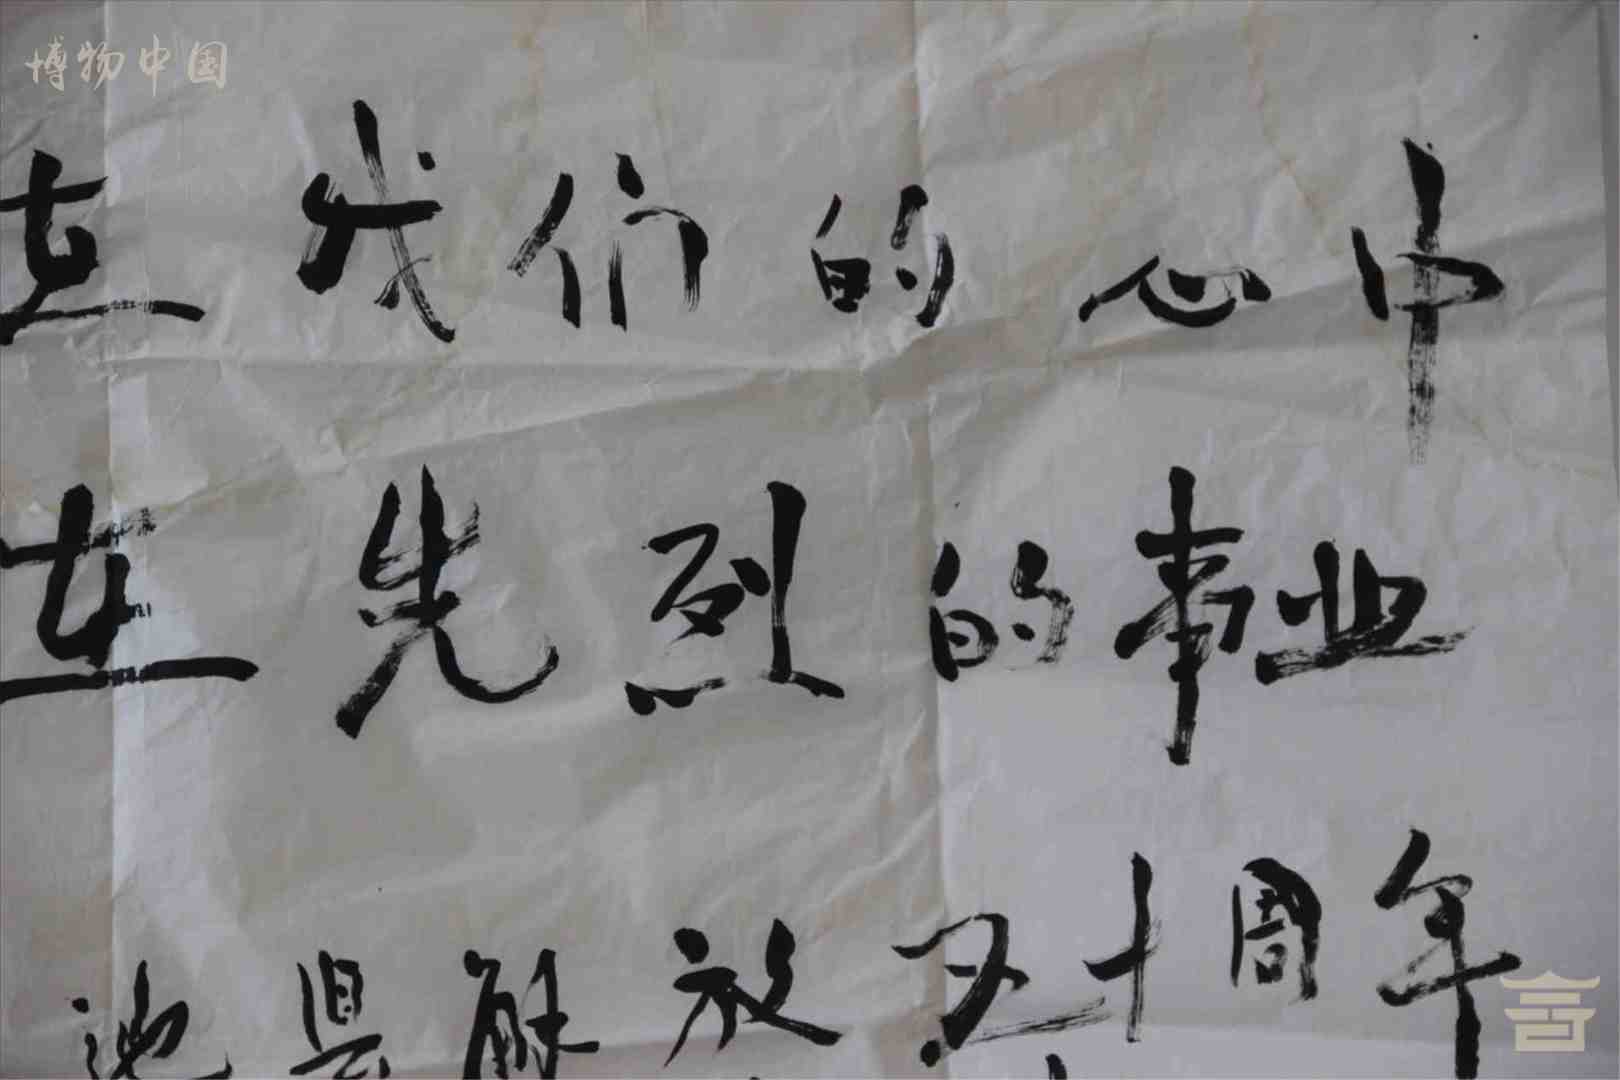 博物中国
在我们的心中
在先烈的事业
池县解放五十周年